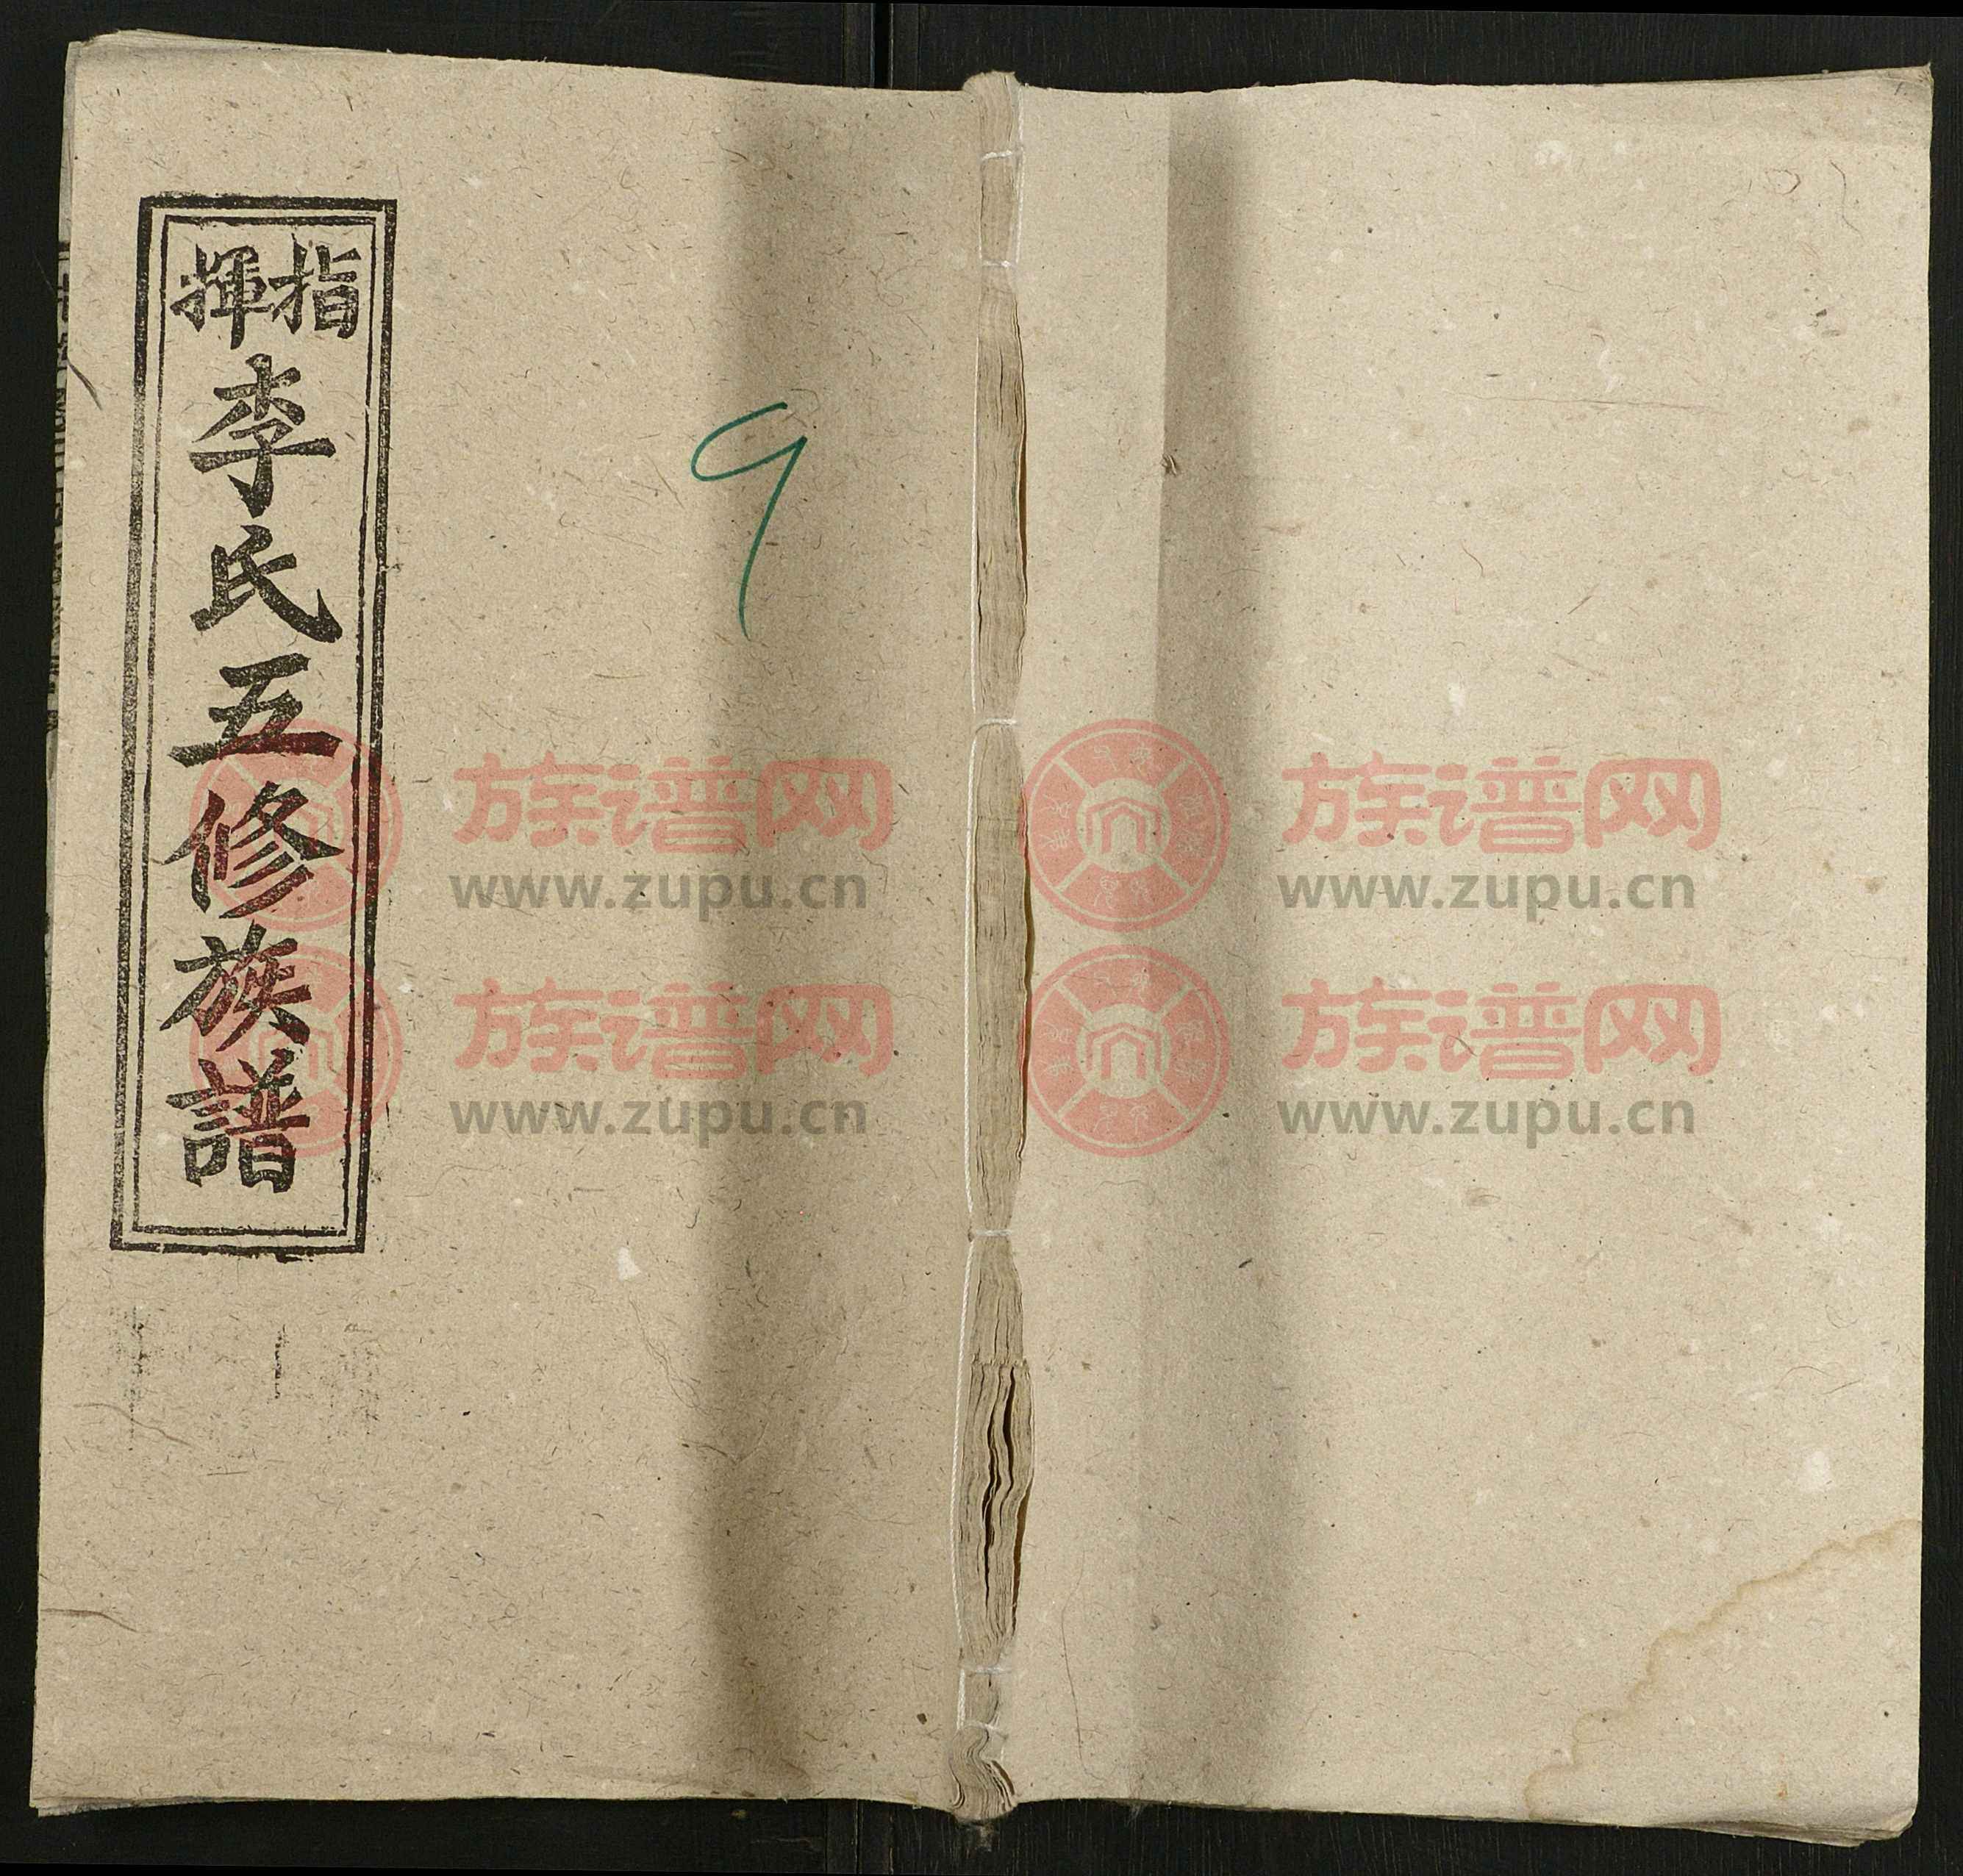 指揮
李氏五修族譜
9
族谱网
www.zupu.cn
族谱网
www.zupu.cn
族谱网
www.zupu.cn
族谱网
www.zupu.cn